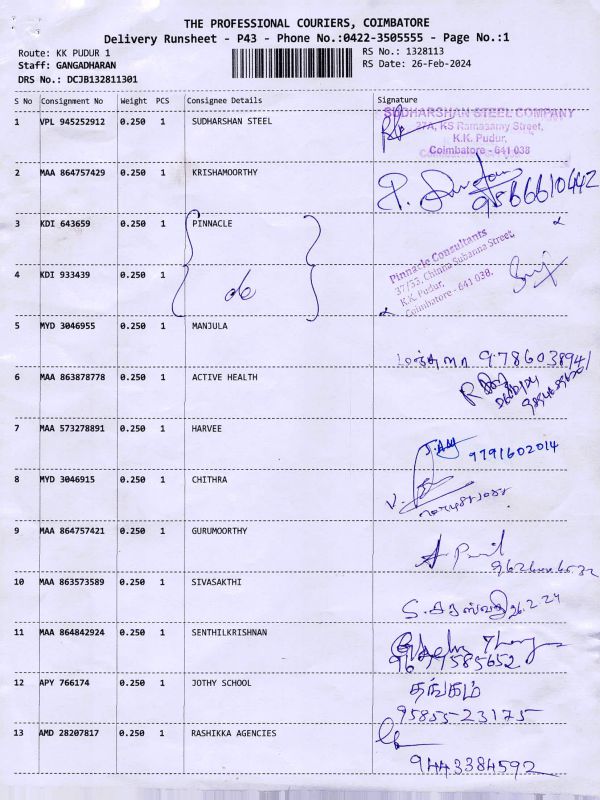 THE PROFESSIONAL COURIERS, COIMBATORE
Delivery Runsheet - P43 - Phone No.:0422-3505555 - Page No.:1
Route: KK PUDUR 1
RS No.: 1328113
Staff: GANGADHARAN
RS Date: 26-Feb-2024
DRS No.: DCJB132811301
S No Consignment No Weight PCS Consignee Details Signature
1 VPL 945252912 0.250 1 SUDHARSHAN STEEL
SUDHARSHAN STEEL COMPANY
37A, RS Ramasamy Street,
K.K. Pudur,
Coimbatore - 641 038
2 MAA 864757429 0.250 1 KRISHAMOORTHY
9566610442
3 KDI 643659 0.250 1 PINNACLE
Pinnacle Consultants
37/55, Chinna Subanna Street,
K.K. Pudur,
Coimbatore - 641 038.
4 KDI 933439 0.250 1
5 MYD 3046955 0.250 1 MANJULA
மஞ்சுளா 9786038941
6 MAA 863878778 0.250 1 ACTIVE HEALTH
7 MAA 573278891 0.250 1 HARVEE
9791602014
8 MYD 3046915 0.250 1 CHITHRA
9 MAA 864757421 0.250 1 GURUMOORTHY
10 MAA 863573589 0.250 1 SIVASAKTHI
26.2.24
11 MAA 864842924 0.250 1 SENTHILKRISHNAN
12 APY 766174 0.250 1 JOTHY SCHOOL
தங்கம்
95855-23175
13 AMD 28207817 0.250 1 RASHIKKA AGENCIES
9443384592